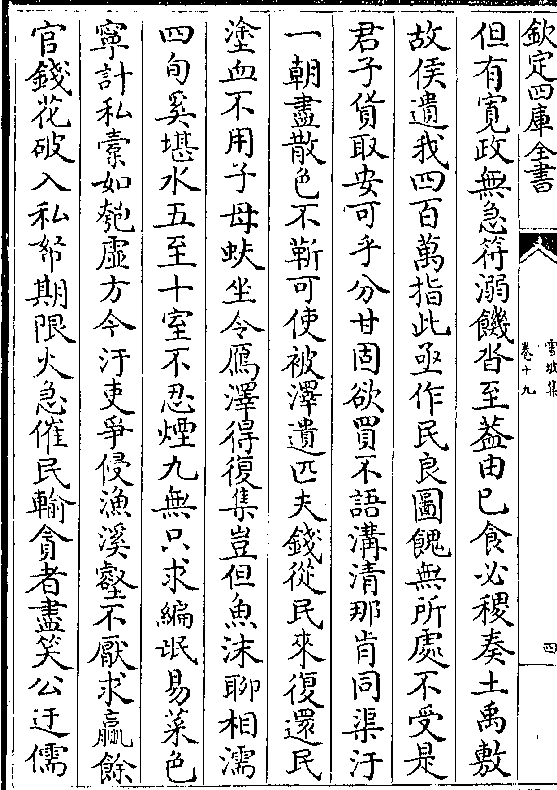 欽定四庫全書
雪坡集
卷十九
四
但有寛政無急符溺饑沓至葢由已食必稷奏土禹敷
故侯遺我四百萬指此亟作民良圖餽無所處不受是
君子貨取安可乎分甘固欲買不語溝清那肯同渠汙
一朝盡散色不靳可使被澤遺匹夫錢從民來復還民
塗血不用子母蚨坐令鴈澤得復集豈但魚沫聊相濡
四旬奚堪水五至十室不忍煙九無只求編氓易菜色
寧計私橐如匏虚方今汙吏爭侵漁溪壑不厭求贏餘
官錢花破入私帑期限火急催民輸貪者盡笑公迂儒